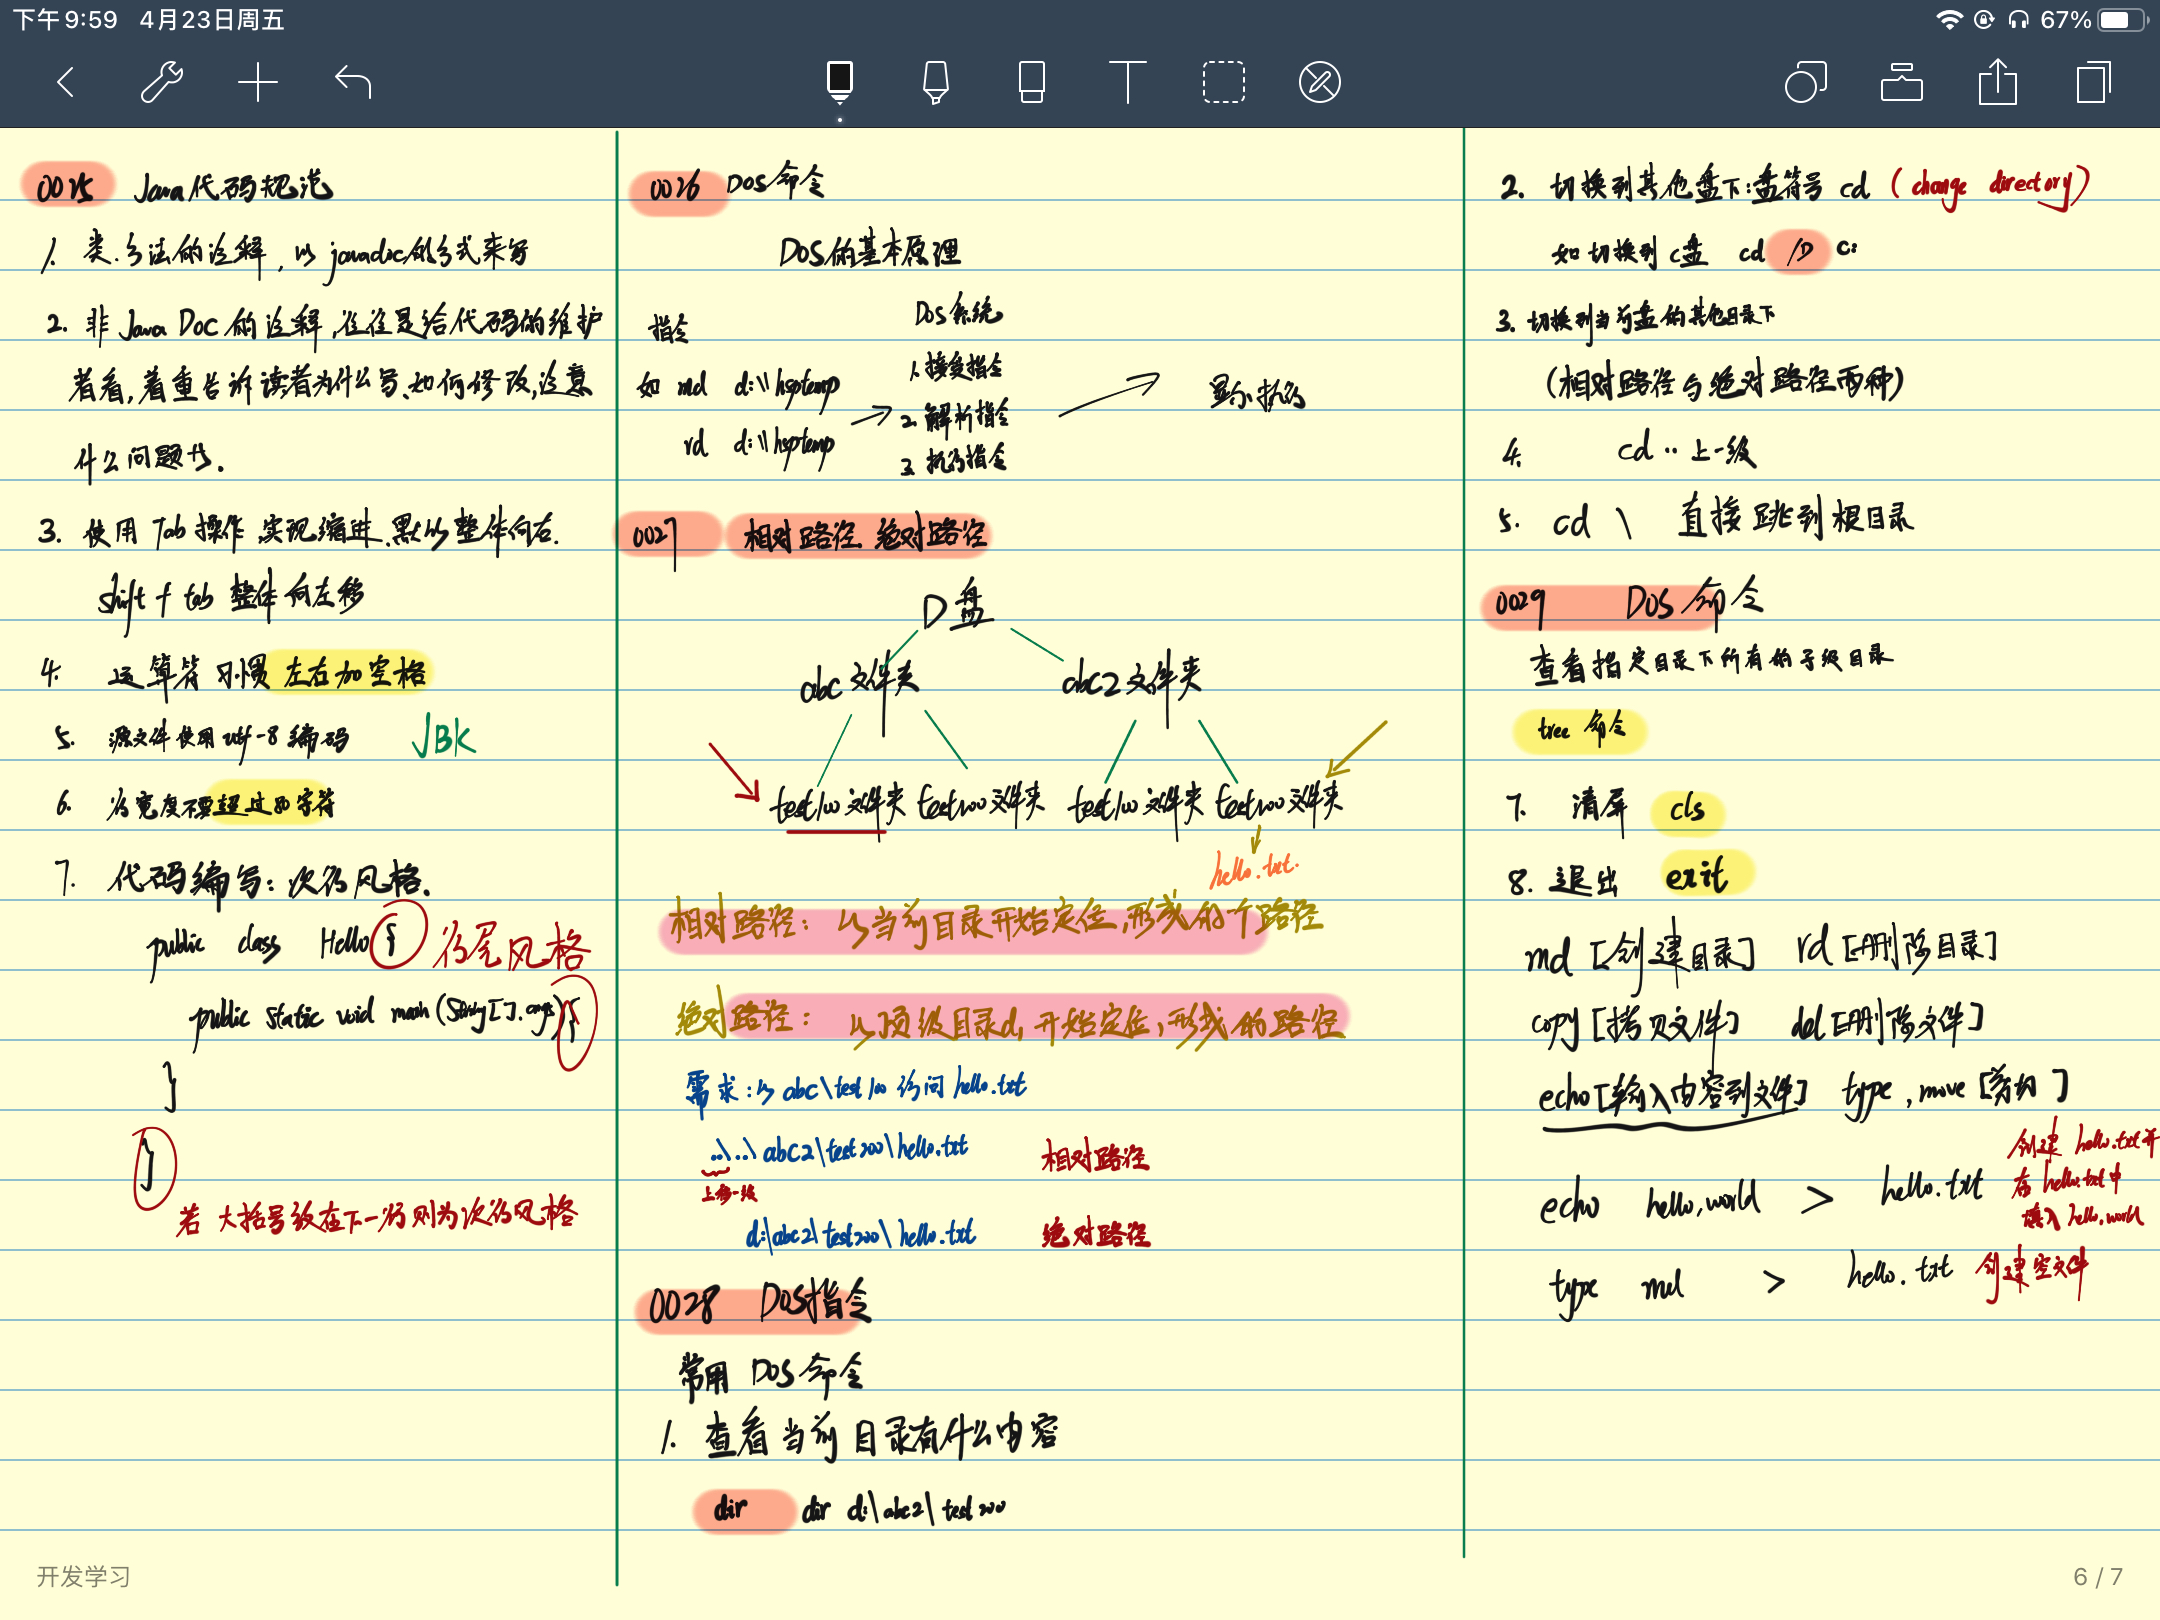 下午9:59 4月23日周五
67%
0025 Java代码规范
1. 类.方法的注释,以javadoc的方式来写
2. 非 Java Doc 的注释,往往是给代码的维护
者看,着重告诉读者为什么写.如何修改,注意
什么问题等.
3. 使用 Tab 操作 实现缩进.默认整体向右.
shift + tab 整体向左移
4. 运算符 习惯 左右加空格
5. 源文件使用 utf-8 编码 JBK
6. 行宽度不要超过80字符
7. 代码编写:次行风格.
public class Hello { 行尾风格
public static void main (String[]. args) {
}
}
若 大括号放在下一行则为次行风格
0026 DOS 命令
DOS的基本原理
指令 DOS系统
如 md d:\\hsptemp 1. 接受指令
rd d:\\hsptemp 2. 解析指令 显示执行
3. 执行指令
0027 相对路径.绝对路径
D盘
abc 文件夹 abc2 文件夹
test100 文件夹 test200 文件夹 test100 文件夹 test200 文件夹
hello.txt.
相对路径: 从当前目录开始定位,形成的个路径
绝对路径: 从顶级目录d,开始定位,形成的路径
需求:从 abc\test100 访问 hello.txt
..\..\abc2\test200\hello.txt 相对路径
上移一级
d:\abc2\test200\hello.txt 绝对路径
0028 DOS指令
常用 DOS 命令
1. 查看当前目录有什么内容
dir dir d:\abc2\test200
2. 切换到其他盘下:盘符号 cd (change directory)
如 切换到 c盘 cd /D c:
3. 切换到当前盘的其他目录下
(相对路径与绝对路径两种)
4. cd .. 上一级
5. cd \ 直接跳到根目录
0029 DOS 命令
查看指定目录下所有的子级目录
tree 命令
7. 清屏 cls
8. 退出 exit
md [创建目录] rd [删除目录]
copy [拷贝文件] del [删除文件]
echo [输入内容到文件] type, move [剪切]
echo hello,world > hello.txt 创建 hello.txt并
在 hello.txt中
填入 hello,world
type nul > hello.txt 创建空文件
开发学习
6 / 7